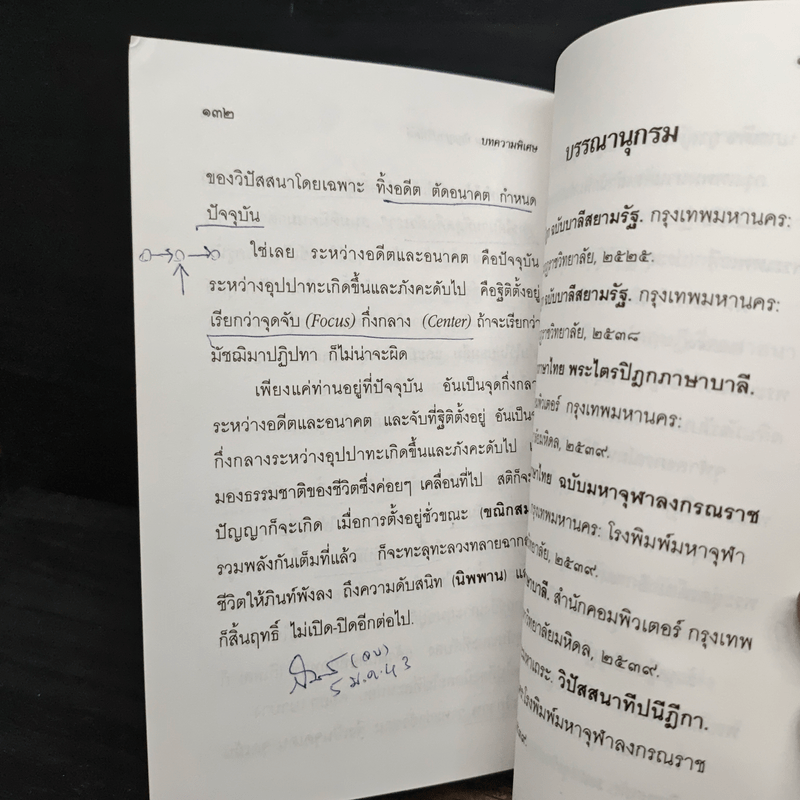 ๑๓๒
บทความพิเศษ
ของวิปัสสนาโดยเฉพาะ ทิ้งอดีต ตัดอนาคต กำหนด
ปัจจุบัน
ใช่เลย ระหว่างอดีตและอนาคต คือปัจจุบัน
ระหว่างอุปปาทะเกิดขึ้นและภังคะดับไป คือฐิติตั้งอยู่
เรียกว่าจุดจับ (Focus) กึ่งกลาง (Center) ถ้าจะเรียกว่า
มัชฌิมาปฏิปทา ก็ไม่น่าจะผิด
เพียงแค่ท่านอยู่ที่ปัจจุบัน อันเป็นจุดกึ่งกลา
ระหว่างอดีตและอนาคต และจับที่ฐิติตั้งอยู่ อันเป็น
กึ่งกลางระหว่างอุปปาทะเกิดขึ้นและภังคะดับไป
มองธรรมชาติของชีวิตซึ่งค่อยๆ เคลื่อนที่ไป สติก็จะ
ปัญญาก็จะเกิด เมื่อการตั้งอยู่ชั่วขณะ (ขณิกสม
รวมพลังกันเต็มที่แล้ว ก็จะทะลุทะลวงทลายฉาก
ชีวิตให้ภินท์พังลง ถึงความดับสนิท (นิพพาน)
ก็สิ้นฤทธิ์ ไม่เปิด-ปิดอีกต่อไป.
(จบ)
5 ม.ค. 43
บรรณานุกรม
ฉบับบาลีสยามรัฐ. กรุงเทพมหานคร:
ราชวิทยาลัย, ๒๕๒๕.
ฉบับบาลีสยามรัฐ. กรุงเทพมหานคร:
ราชวิทยาลัย, ๒๕๓๘
ภาษาไทย พระไตรปิฎกภาษาบาลี.
พิวเตอร์ กรุงเทพมหานคร:
มหิดล, ๒๕๓๙.
ษาไทย ฉบับมหาจุฬาลงกรณราช
กรุงเทพมหานคร: โรงพิมพ์มหาจุฬา
ยาลัย, ๒๕๓๙.
ษาบาลี. สำนักคอมพิวเตอร์ กรุงเทพ
วิทยาลัยมหิดล, ๒๕๓๙.
มหาเถระ. วิปัสสนาทีปนีฎีกา.
โรงพิมพ์มหาจุฬาลงกรณราช